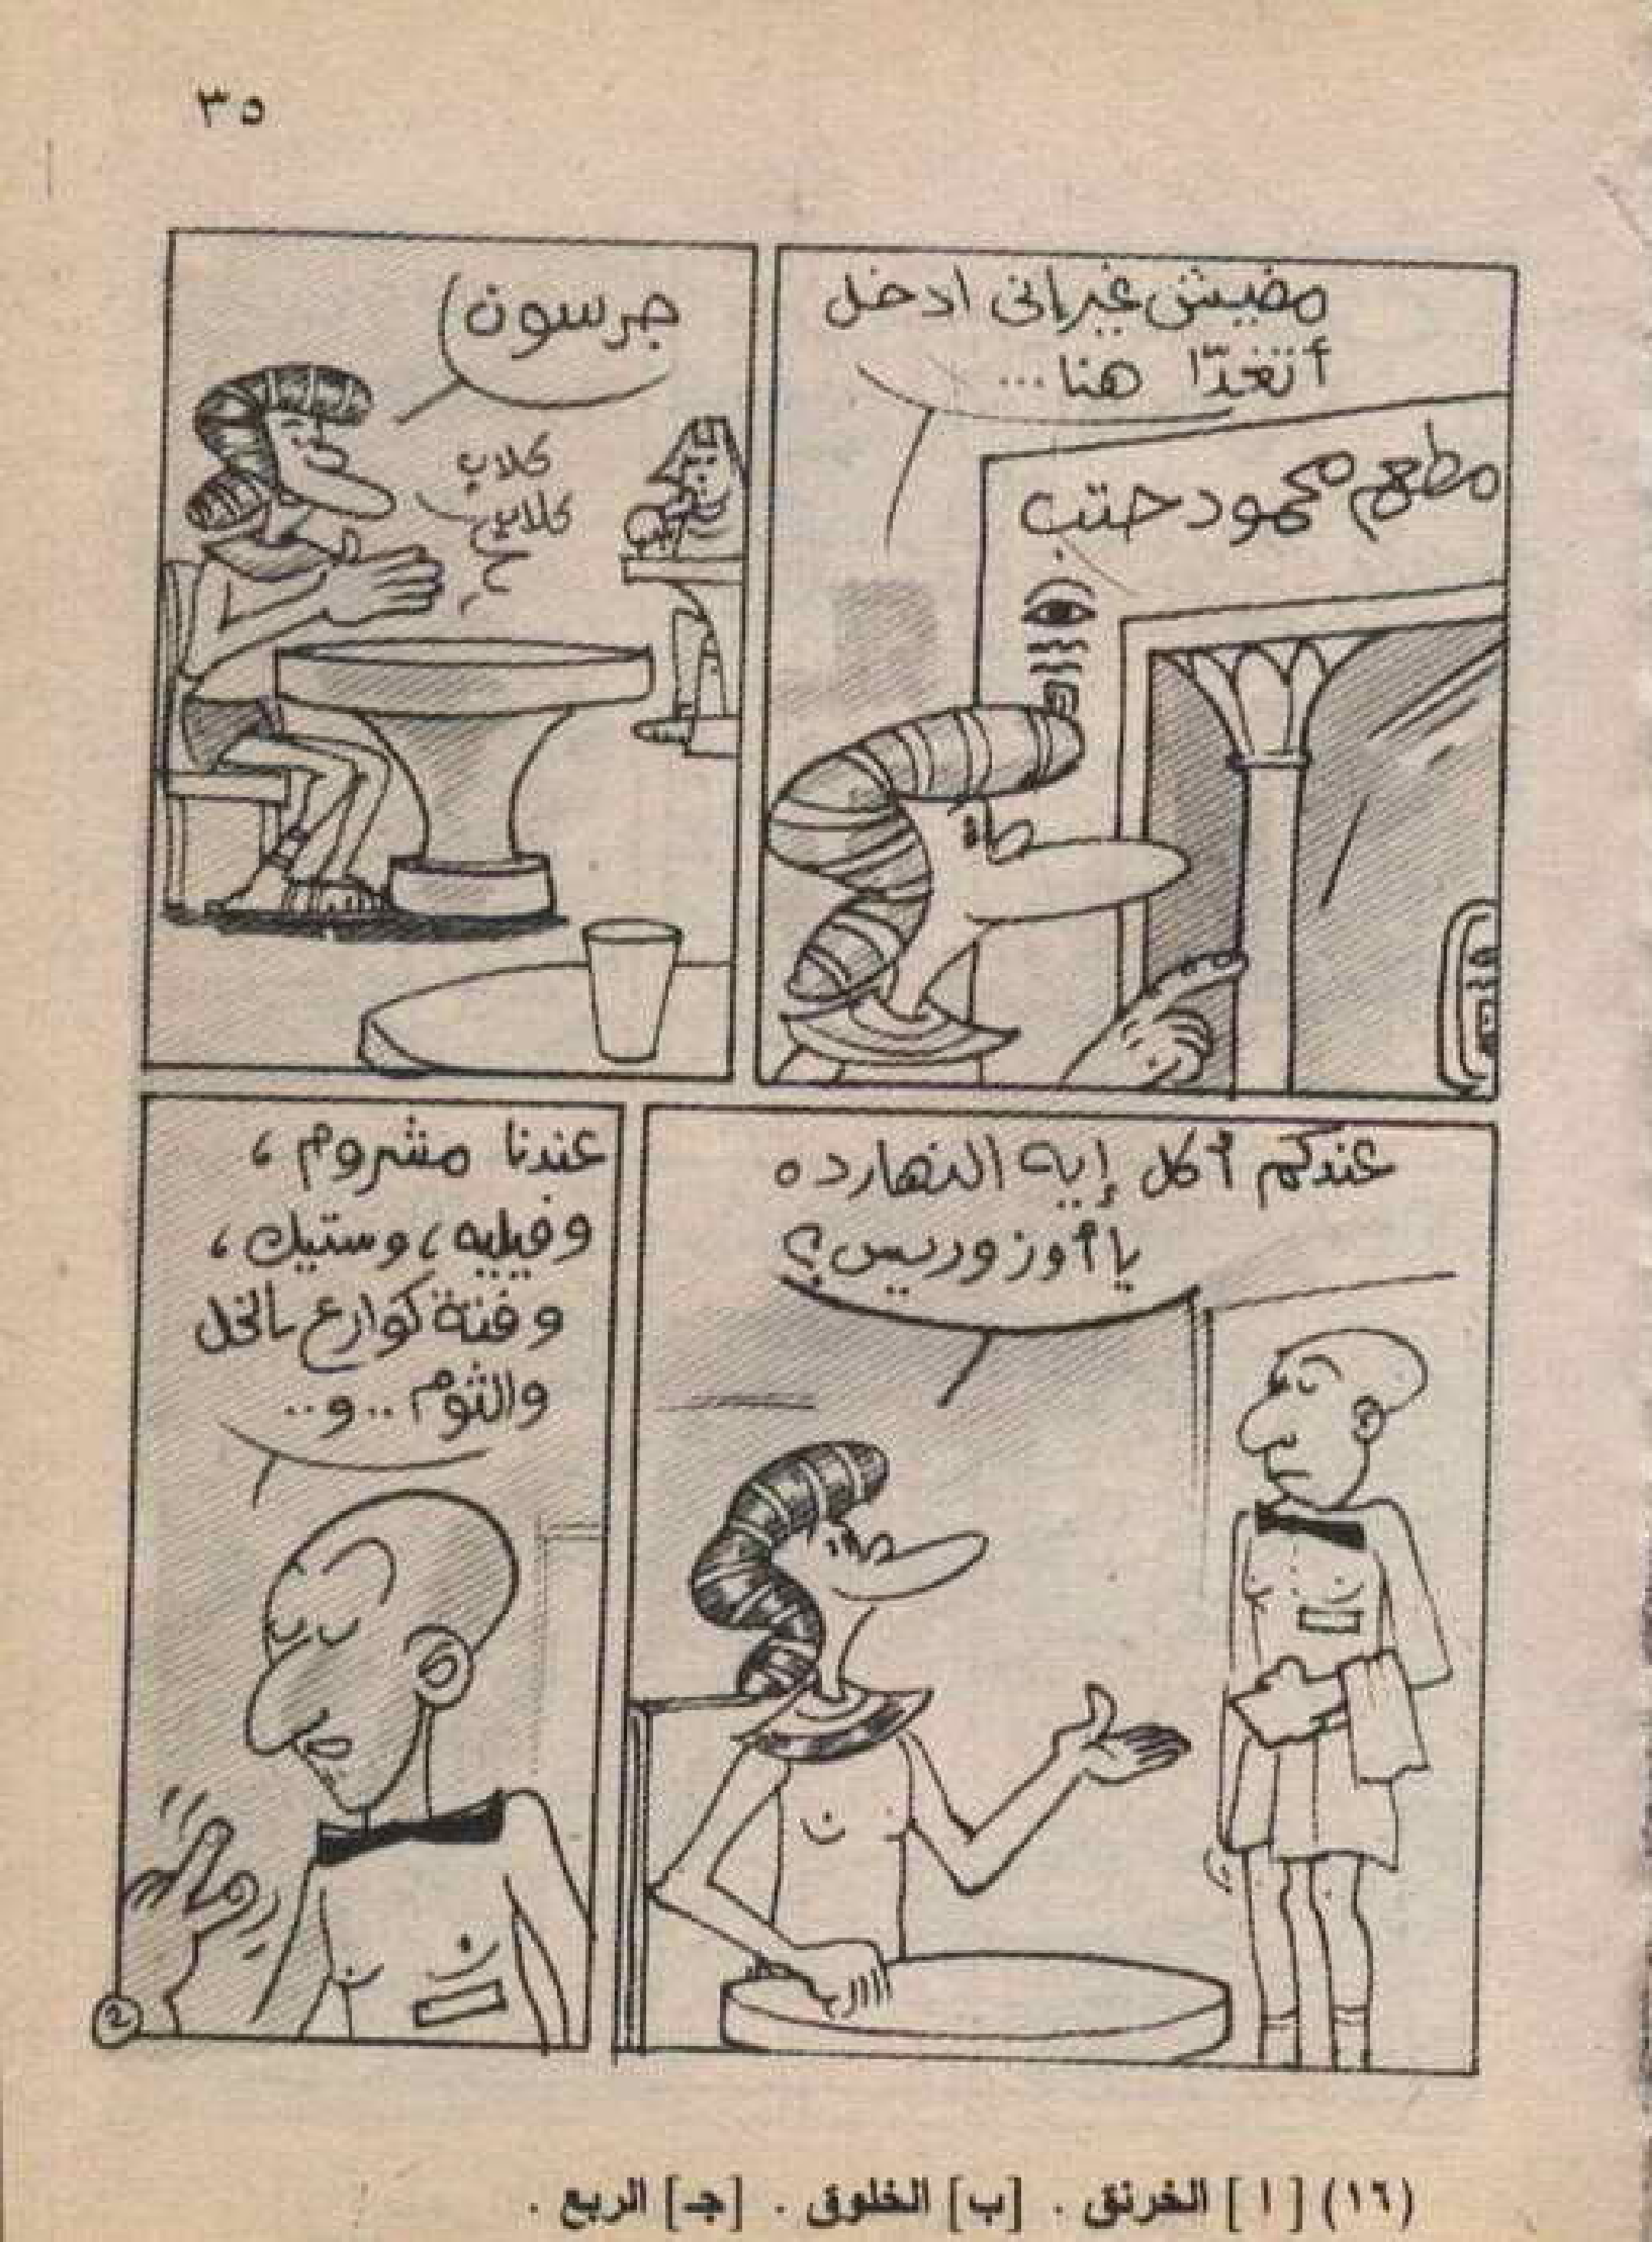 ٣٥
مفيش غير إنى ادخل
أتغدّا هنا...
مطعم محمود حتب
جرسون
كلاب
كلاب
عندكم أكل إيه النهارده
يا أوزوريس؟
عندنا مشروم،
وفيليه، وستيك،
وفتة كوارع بالخل
والثوم.. و..
2
(١٦) [ ا ] الخرنق . [ب] الخلوق . [جـ] الربع .